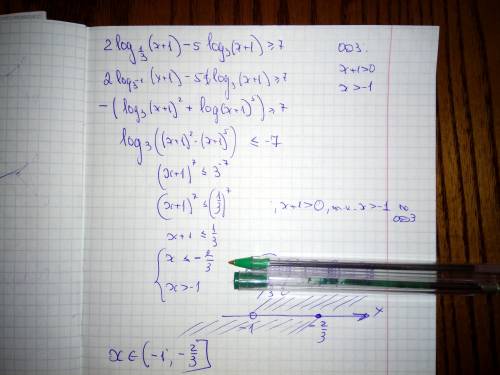 2 log_{1/3} (x+1) - 5 log₃ (x+1) ≥ 7
ОДЗ.
x+1>0
x>-1
2 log_{3⁻¹} (x+1) - 5 log₃ (x+1) ≥ 7
-(log₃ (x+1)² + log (x+1)⁵) ≥ 7
log₃ ((x+1)² · (x+1)⁵) ≤ -7
(x+1)⁷ ≤ 3⁻⁷
(x+1)⁷ ≤ (1/3)⁷ ; x+1>0, т.к. x>-1 по ОДЗ
x+1 ≤ 1/3
{ x ≤ -2/3
x>-1
-1 -2/3 x
x ∈ (-1; -2/3]